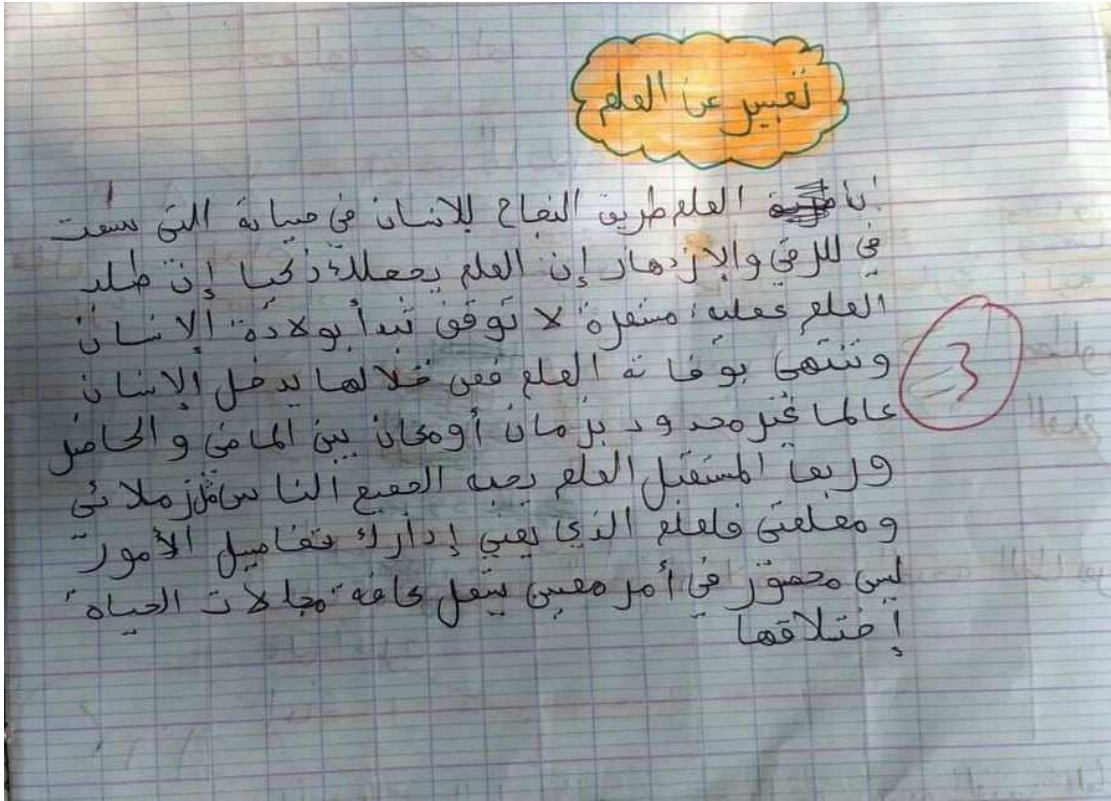 تعبير عن العلم
إن العلم طريق النجاح للإنسان في حياته التي
في للرقي والإزدهار إن العلم يجعلك ذكيا إن طلب
العلم عملية مستمرة لا توقف تبدأ بولادة الإنسان
وتنتهي بوفاته العلم فمن خلالها يدخل الإنسان
عالما غير محدود بزمان أو مكان بين الماضي والحاضر
وربما المستقبل العلم يحبه الجميع الناس مثل زملائي
ومعلمتي فلعلم الذي يعني إدارك تفاصيل الأمور
ليس محصور في أمر معين كافة مجالات الحياة
إختلاقها
3